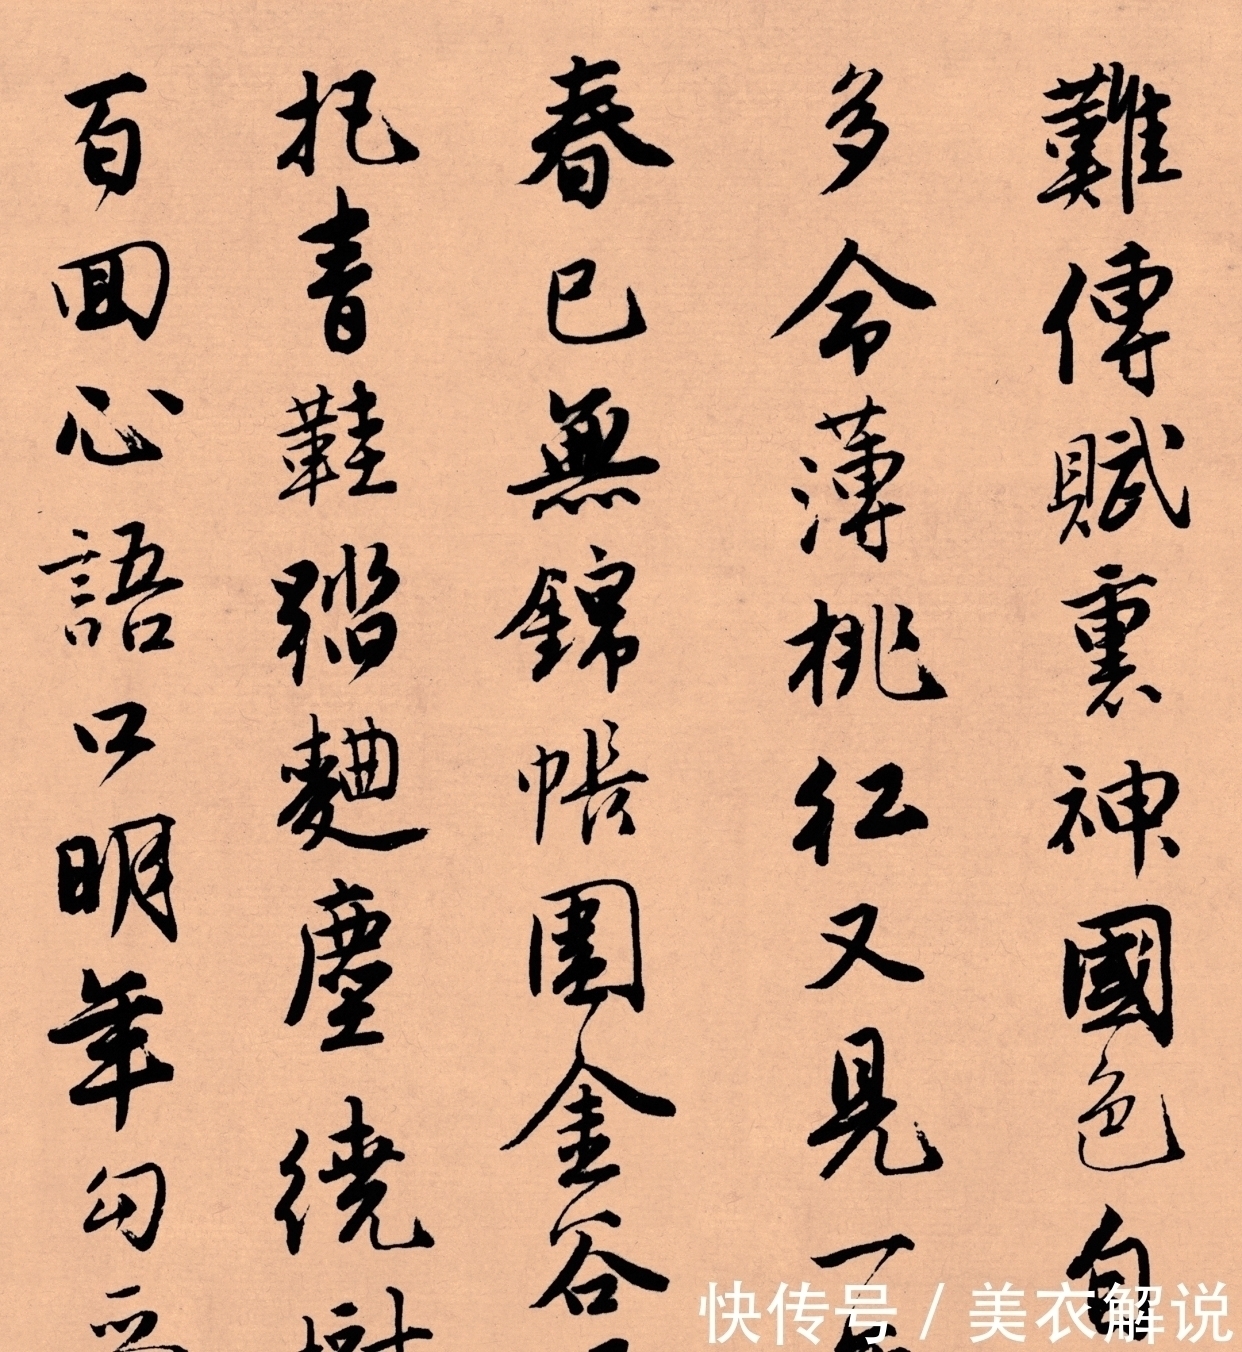 難傳賦裏神國色自
多命薄桃紅又見一
春已無錦帳圍金谷
把青鞋踏麯塵繞樹
百回心語口明年勾
快传号 / 美衣解说